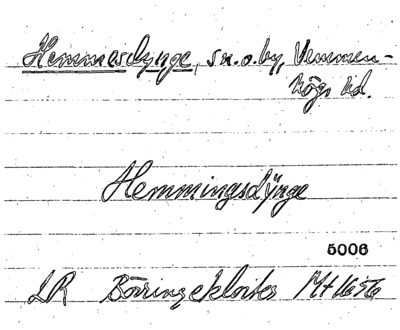 Hemmesdynge, sn. o. by, Vemmen-
högs hd.
Hemmingsdÿnge
5006
LR Börringekloster Mt